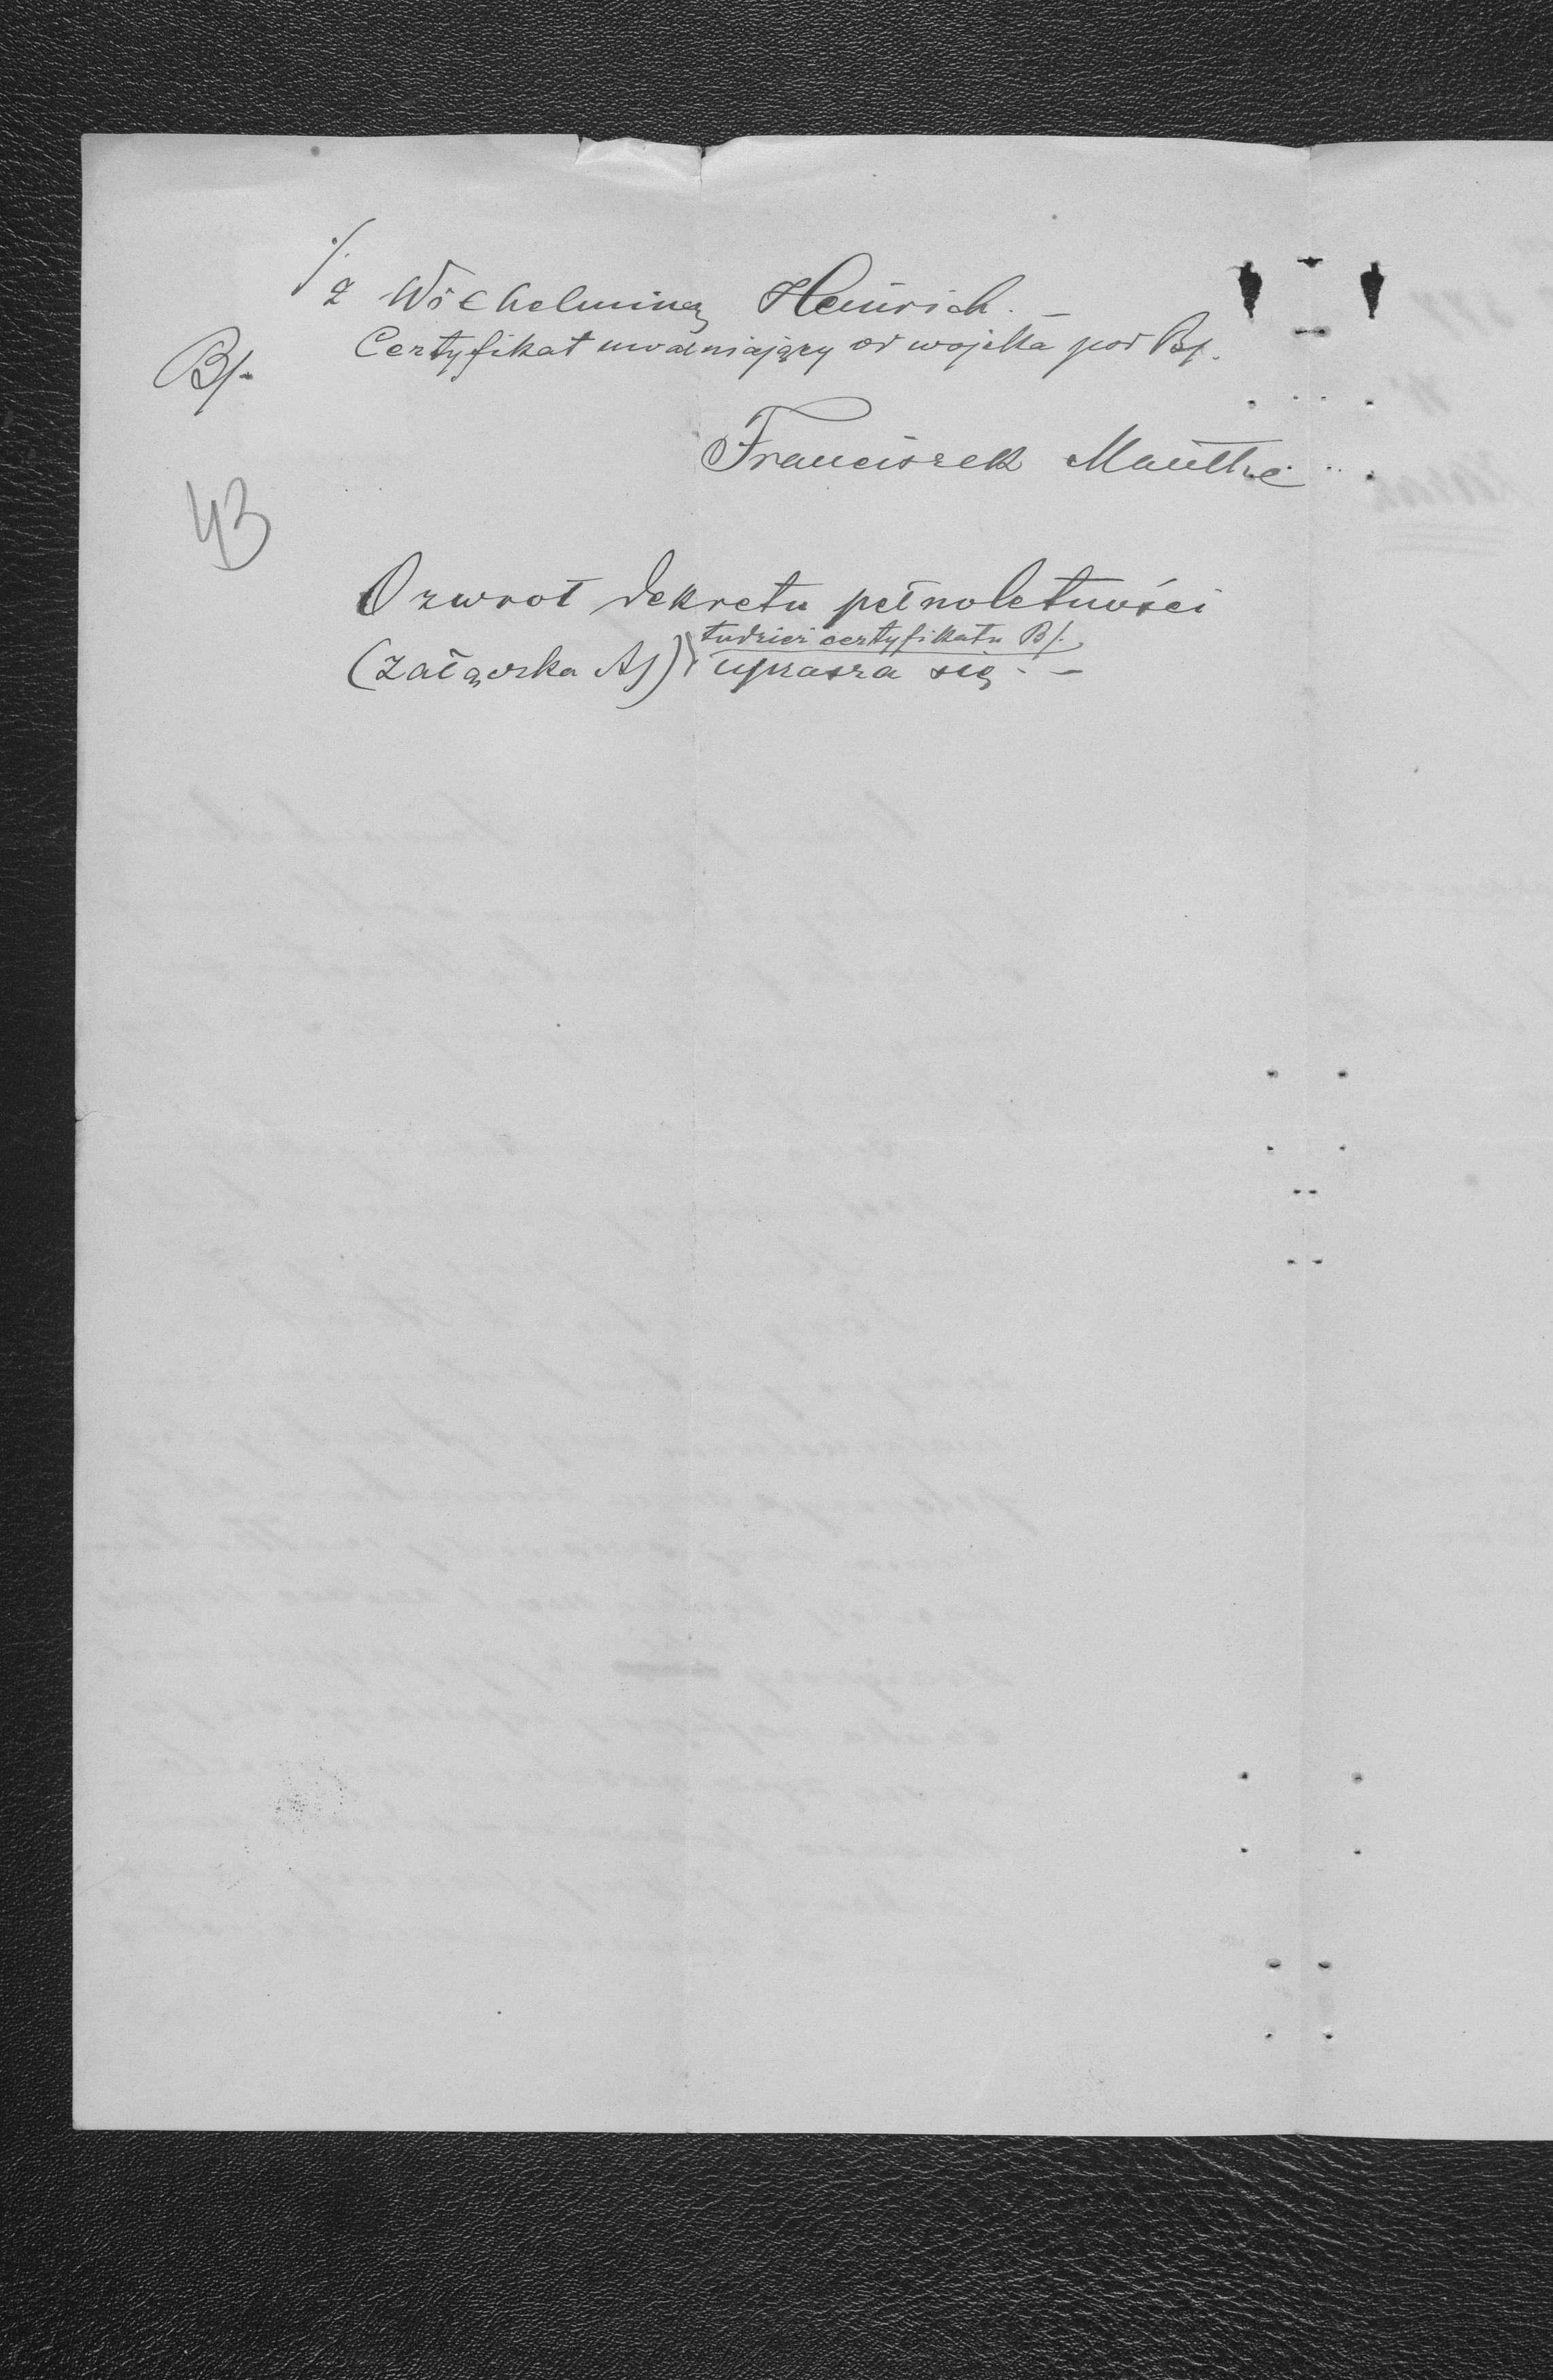 ./. z Wilhelminą Heinrich. –
B/. Certyfikat uwalniający od wojska pod B/.
Franciszek Mauthe
43
O zwrot dekretu pełnoletności
tudzież certyfikatu B/.
(załączka A/) uprasza się. –